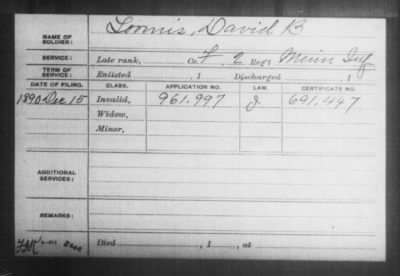 NAME OF SOLDIER: Loomis, David B
SERVICE: Late rank, Co. F, 2 Reg't Minn Inf
TERM OF SERVICE: Enlisted , 1 Discharged , 1
DATE OF FILING. CLASS. APPLICATION NO. LAW. CERTIFICATE NO.
1890 Dec 15 Invalid, 961.997 J 691.447
Widow,
Minor,
ADDITIONAL SERVICES:
REMARKS:
Died , 1 , at